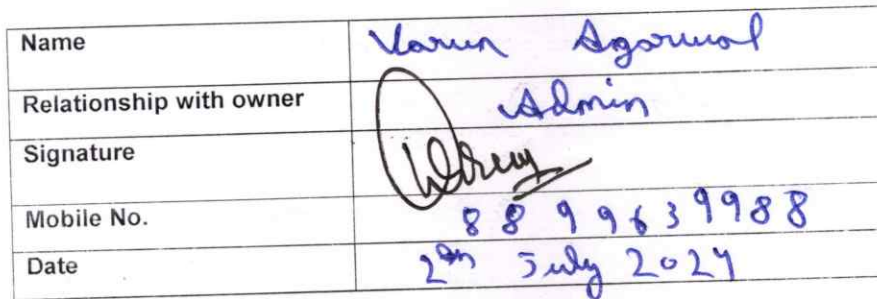 Name Varun Agarwal
Relationship with owner Admin
Signature
Mobile No. 8899639988
Date 2nd July 2024